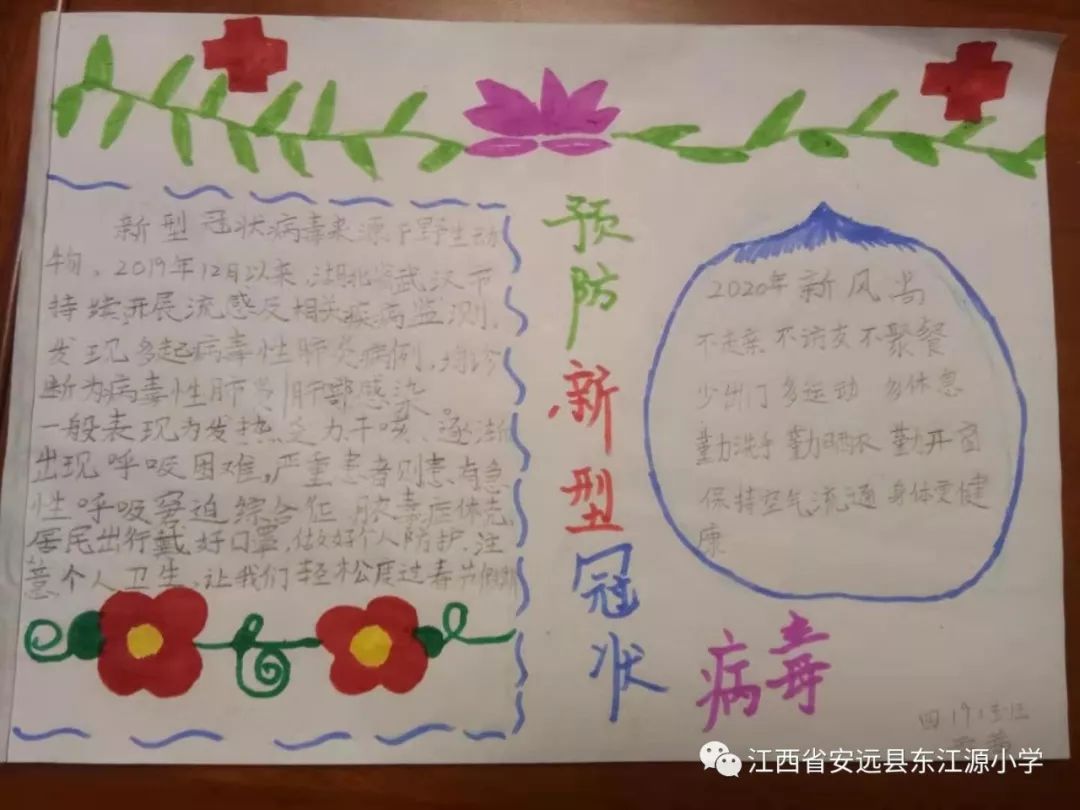 预防新型冠状
病毒
新型冠状病毒来源于野生动
物，2019年12月以来，湖北省武汉市
持续开展流感及相关疾病监测，
发现多起病毒性肺炎病例，均诊
断为病毒性肺炎 肺部感染。
一般表现为发热、乏力、干咳、逐渐
出现呼吸困难，严重患者则患有急
性呼吸窘迫综合征
居民出行戴好口罩，做好个人防护，注
意个人卫生，让我们轻松度过
2020年新风尚
不走亲 不访友 不聚餐
少出门 多运动 多休息
勤洗手 勤晒衣 勤开窗
保持空气流通 身体变健
康
江西省安远县东江源小学